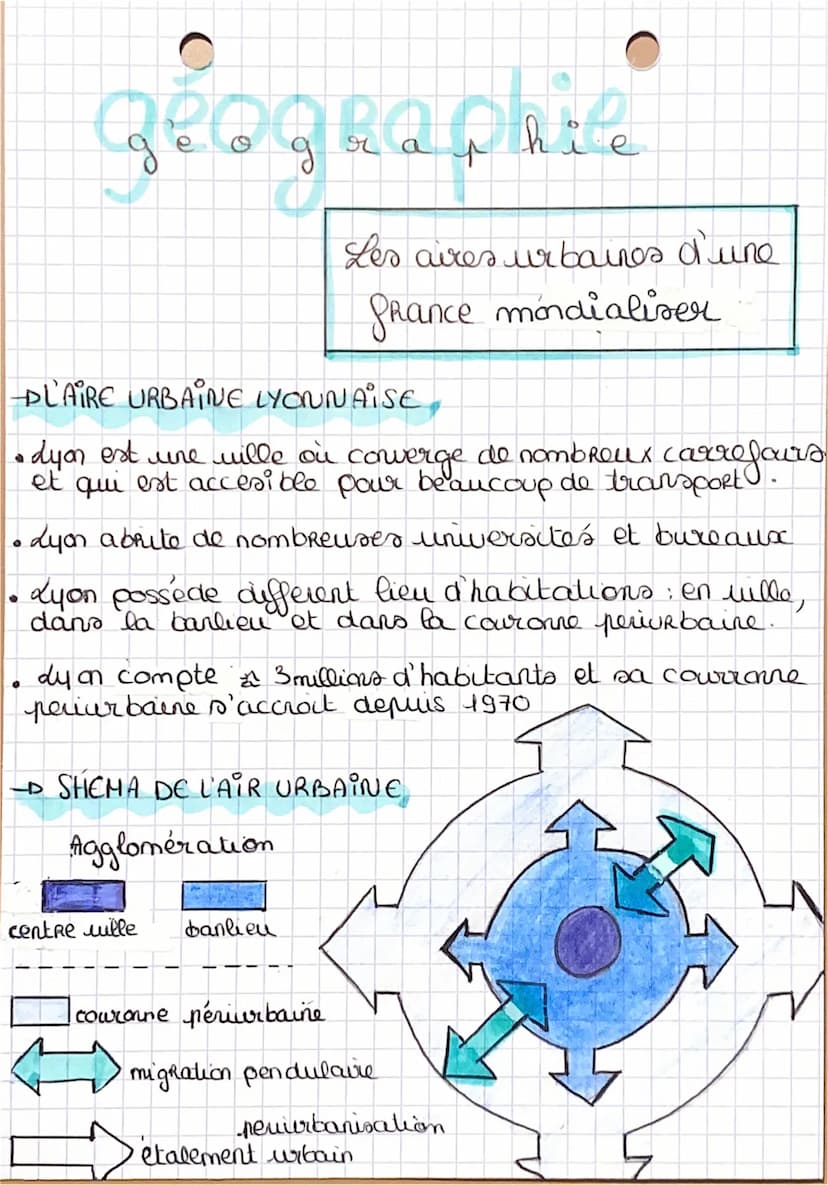 géographie
géographie
Les aires urbaines d'une
france mondialiser
→L'AIRE URBAINE LYONNAISE
• Lyon est une ville où converge de nombreux carrefours
et qui est accesible pour beaucoup de transport.
• Lyon abrite de nombreuses universités et bureaux
• Lyon possède different lieu d'habitations : en ville,
dans la banlieu et dans la couronne periurbaine.
• Lyon compte 3 millions d'habitants et sa courronne
periurbaine s'accroit depuis 1970
→ SHEMA DE L'AIR URBAINE
Agglomération
centre ville banlieu
couronne périurbaine
migration pendulaire
periurbanisation
étalement urbain